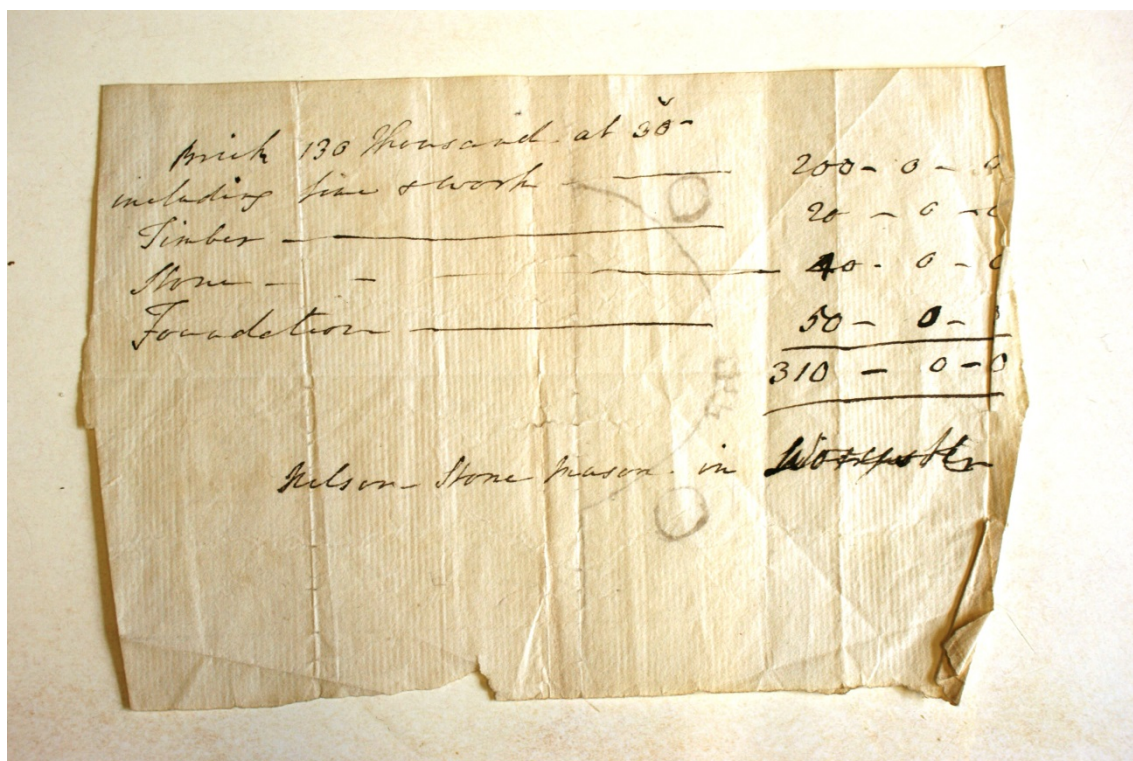 Brick 130 Thousand at 30-
including lime & work - — 200 - 0 - 0
Timber - — 20 - 0 - 0
Stone - - — 40 - 0 - 0
Foundation — 50 - 0 - 0
310 - 0 - 0
Nelson - Stone Mason - in Worcester